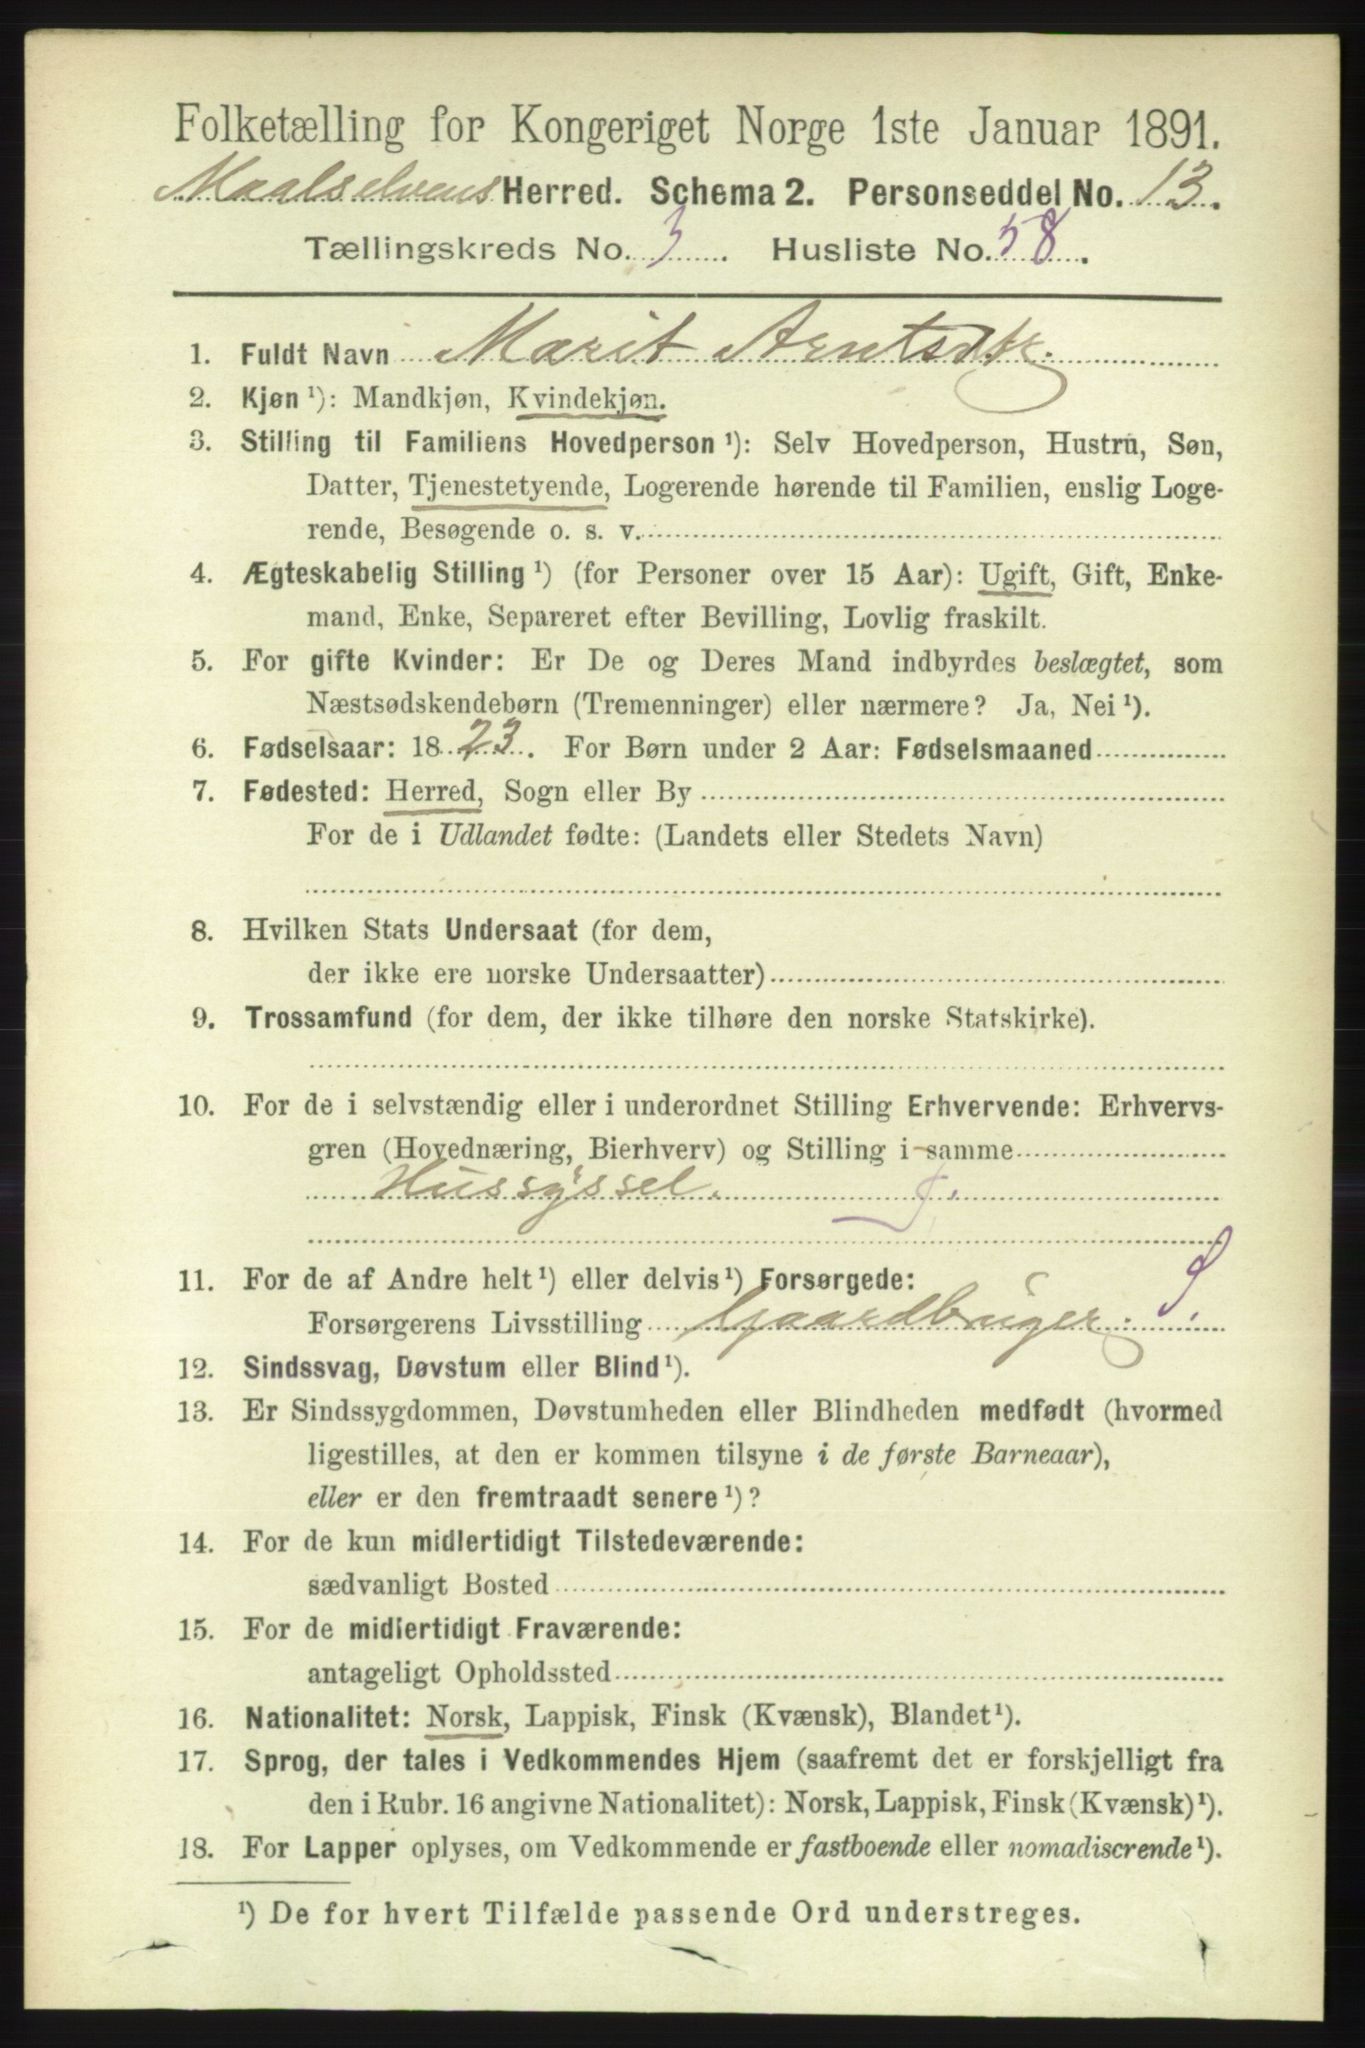 Folketælling for Kongeriget Norge 1ste Januar 1891.
Maalselvens Herred. Schema 2. Personseddel No. 13.
Tællingskreds No. 3. Husliste No. 58.
1. Fuldt Navn Marit Arntsdtr.
2. Kjøn ¹): Mandkjøn, Kvindekjøn.
3. Stilling til Familiens Hovedperson ¹): Selv Hovedperson, Hustru, Søn,
Datter, Tjenestetyende, Logerende hørende til Familien, enslig Loge-
rende, Besøgende o. s. v.
4. Ægteskabelig Stilling ¹) (for Personer over 15 Aar): Ugift, Gift, Enke-
mand, Enke, Separeret efter Bevilling, Lovlig fraskilt.
5. For gifte Kvinder: Er De og Deres Mand indbyrdes beslægtet, som
Næstsødskendebørn (Tremenninger) eller nærmere? Ja, Nei ¹).
6. Fødselsaar: 1823. For Børn under 2 Aar: Fødselsmaaned
7. Fødested: Herred, Sogn eller By
For de i Udlandet fødte: (Landets eller Stedets Navn)
8. Hvilken Stats Undersaat (for dem,
der ikke ere norske Undersaatter)
9. Trossamfund (for dem, der ikke tilhøre den norske Statskirke).
10. For de i selvstændig eller i underordnet Stilling Erhvervende: Erhvervs-
gren (Hovednæring, Bierhverv) og Stilling i samme
Hussyssel.
11. For de af Andre helt ¹) eller delvis ¹) Forsørgede:
Forsørgerens Livsstilling Gaardbruger.
12. Sindssvag, Døvstum eller Blind ¹).
13. Er Sindssygdommen, Døvstumheden eller Blindheden medfødt (hvormed
ligestilles, at den er kommen tilsyne i de første Barneaar),
eller er den fremtraadt senere ¹)?
14. For de kun midlertidigt Tilstedeværende:
sædvanligt Bosted
15. For de midlertidigt Fraværende:
antageligt Opholdssted
16. Nationalitet: Norsk, Lappisk, Finsk (Kvænsk), Blandet ¹).
17. Sprog, der tales i Vedkommendes Hjem (saafremt det er forskjelligt fra
den i Rubr. 16 angivne Nationalitet): Norsk, Lappisk, Finsk (Kvænsk) ¹).
18. For Lapper oplyses, om Vedkommende er fastboende eller nomadiscrende ¹).
¹) De for hvert Tilfælde passende Ord understreges.